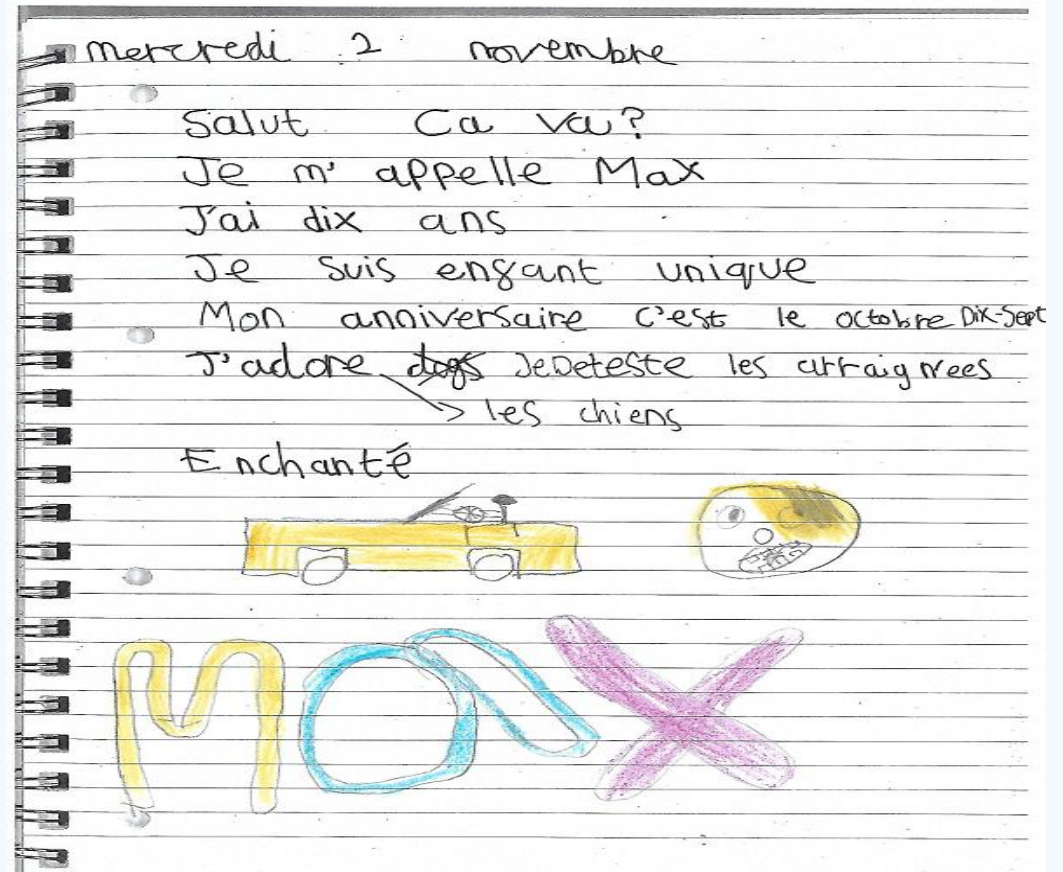 mercredi 2 novembre
Salut Ca va?
Je m'appelle Max
J'ai dix ans
Je suis enfant unique
Mon anniversaire c'est le octobre Dix-Sept
J'adore dogs Je Deteste les arraignees
les chiens
Enchanté
Max